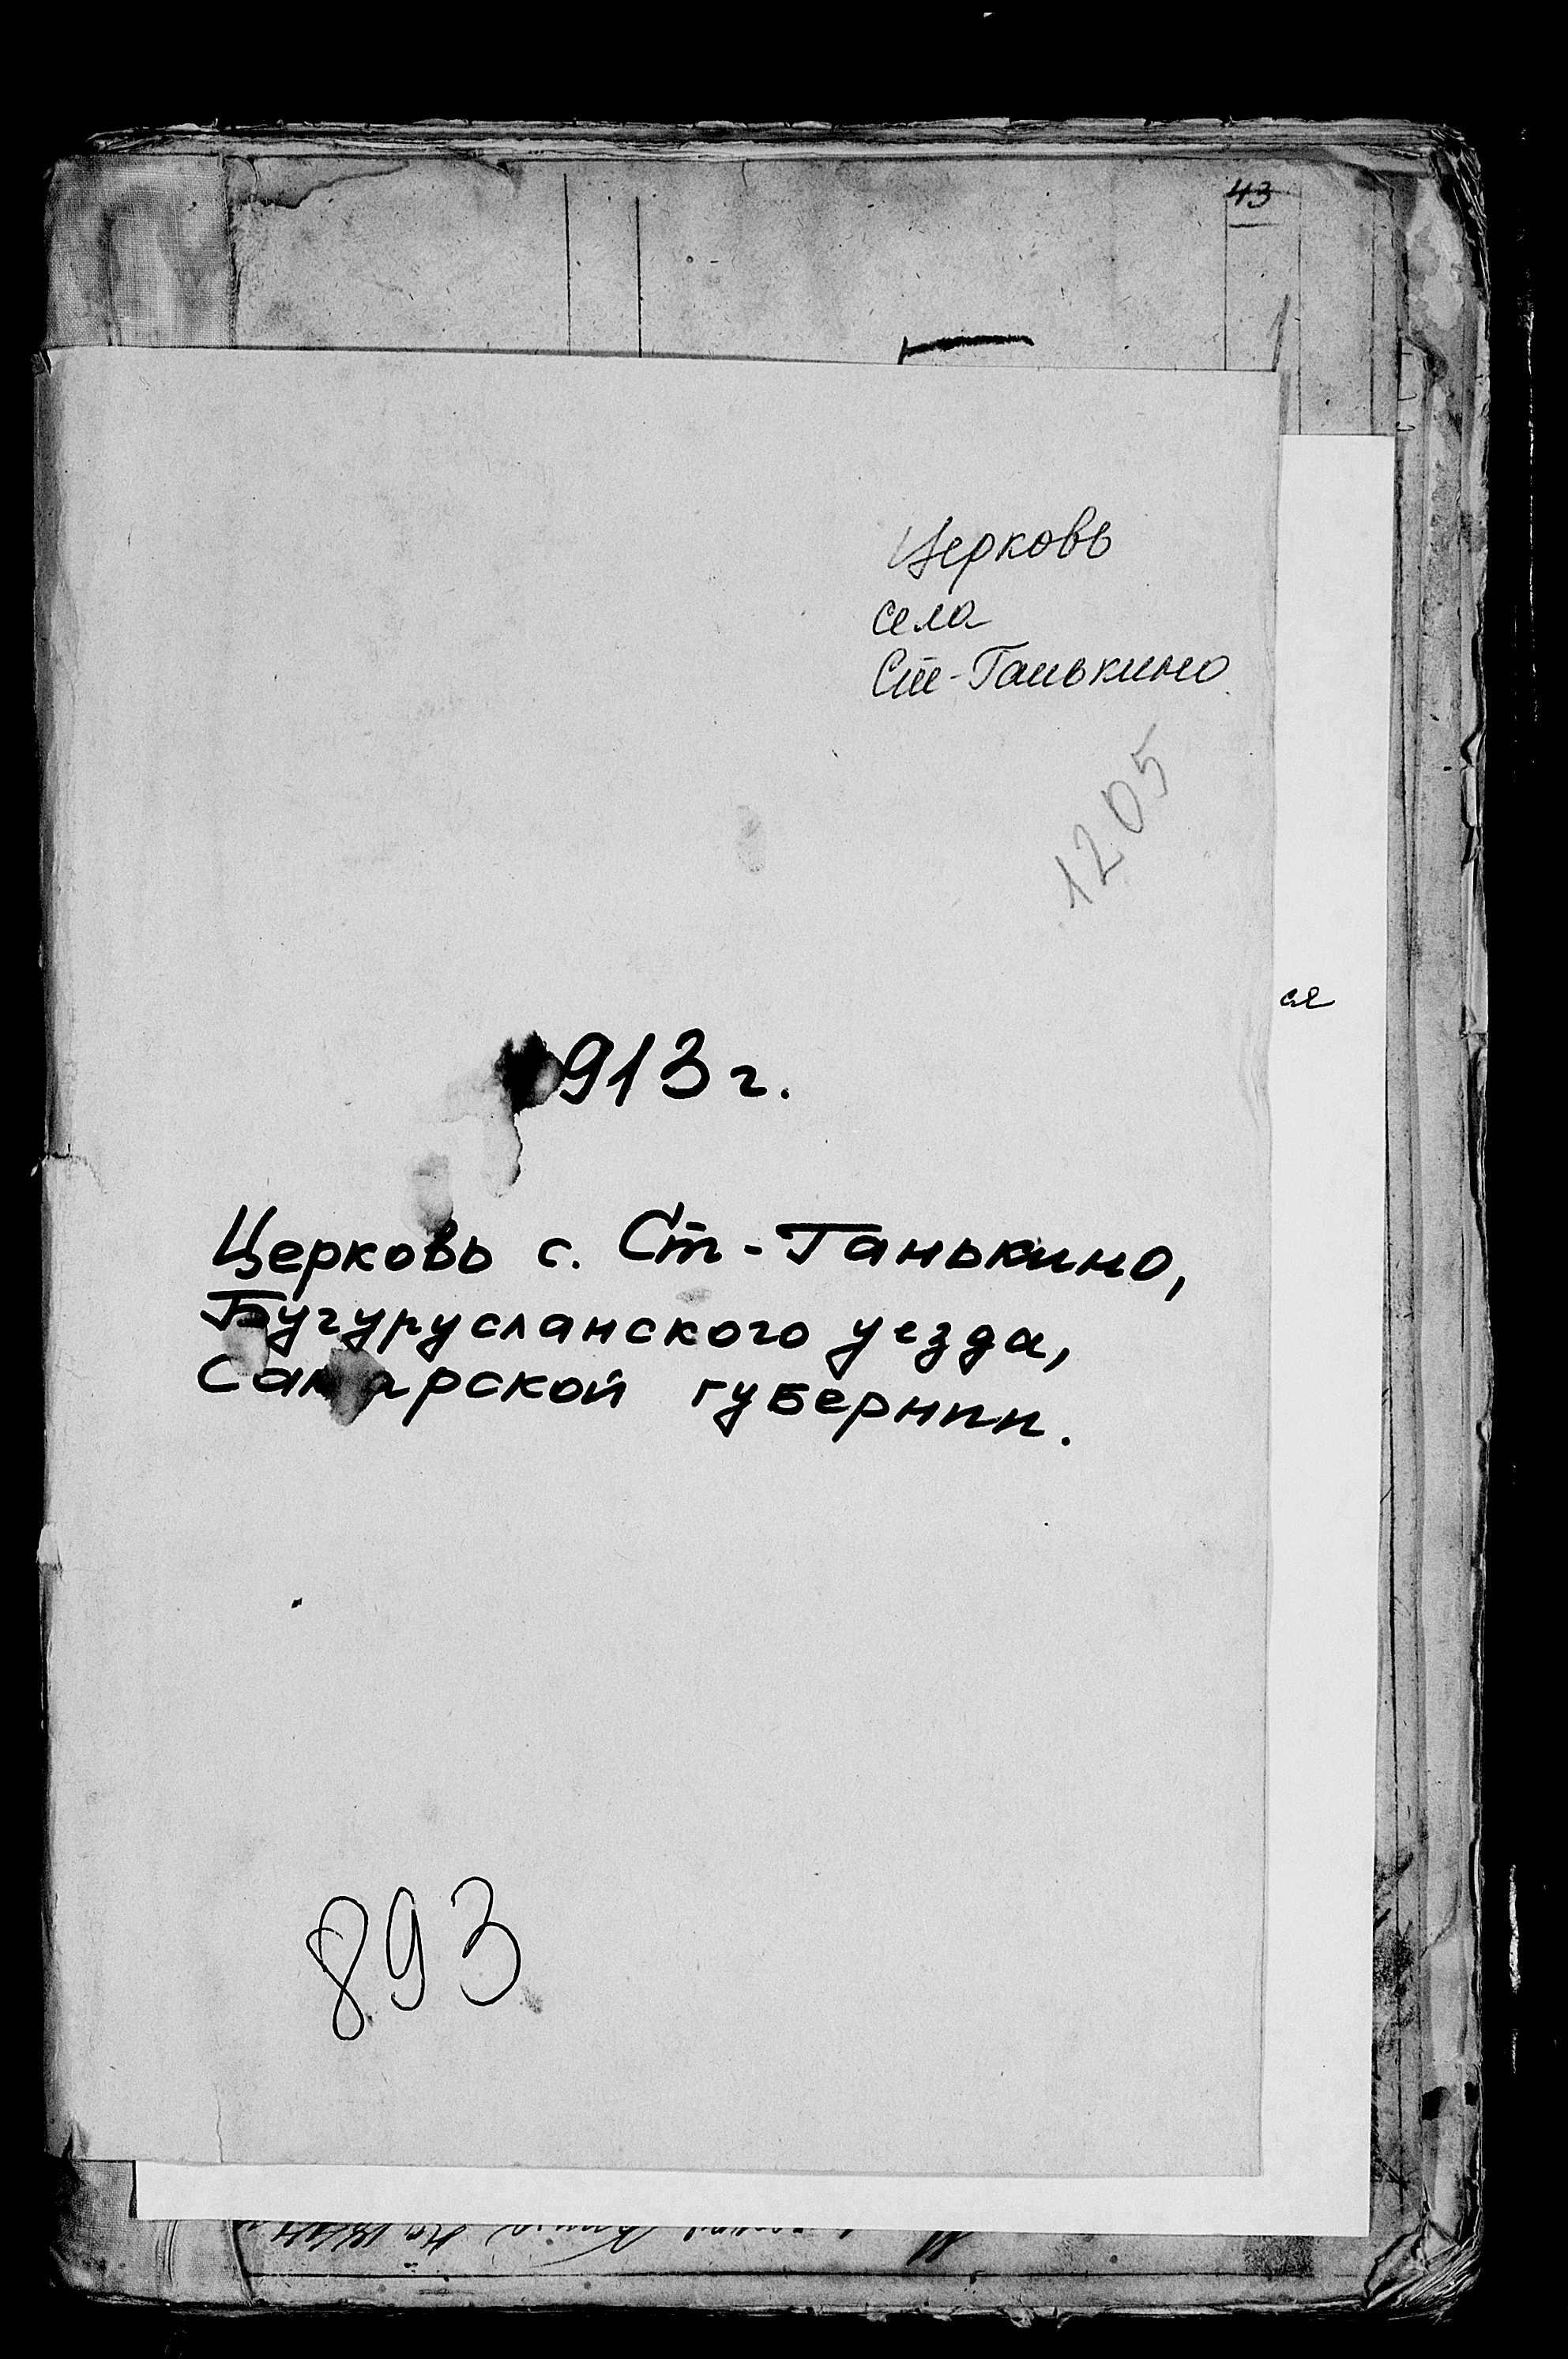 43
Церковь
села
Ст-Ганькино
1205
ся
913г.
Церковь с. Ст-Ганькино,
Бугурусланского уезда,
Самарской губернии.
893